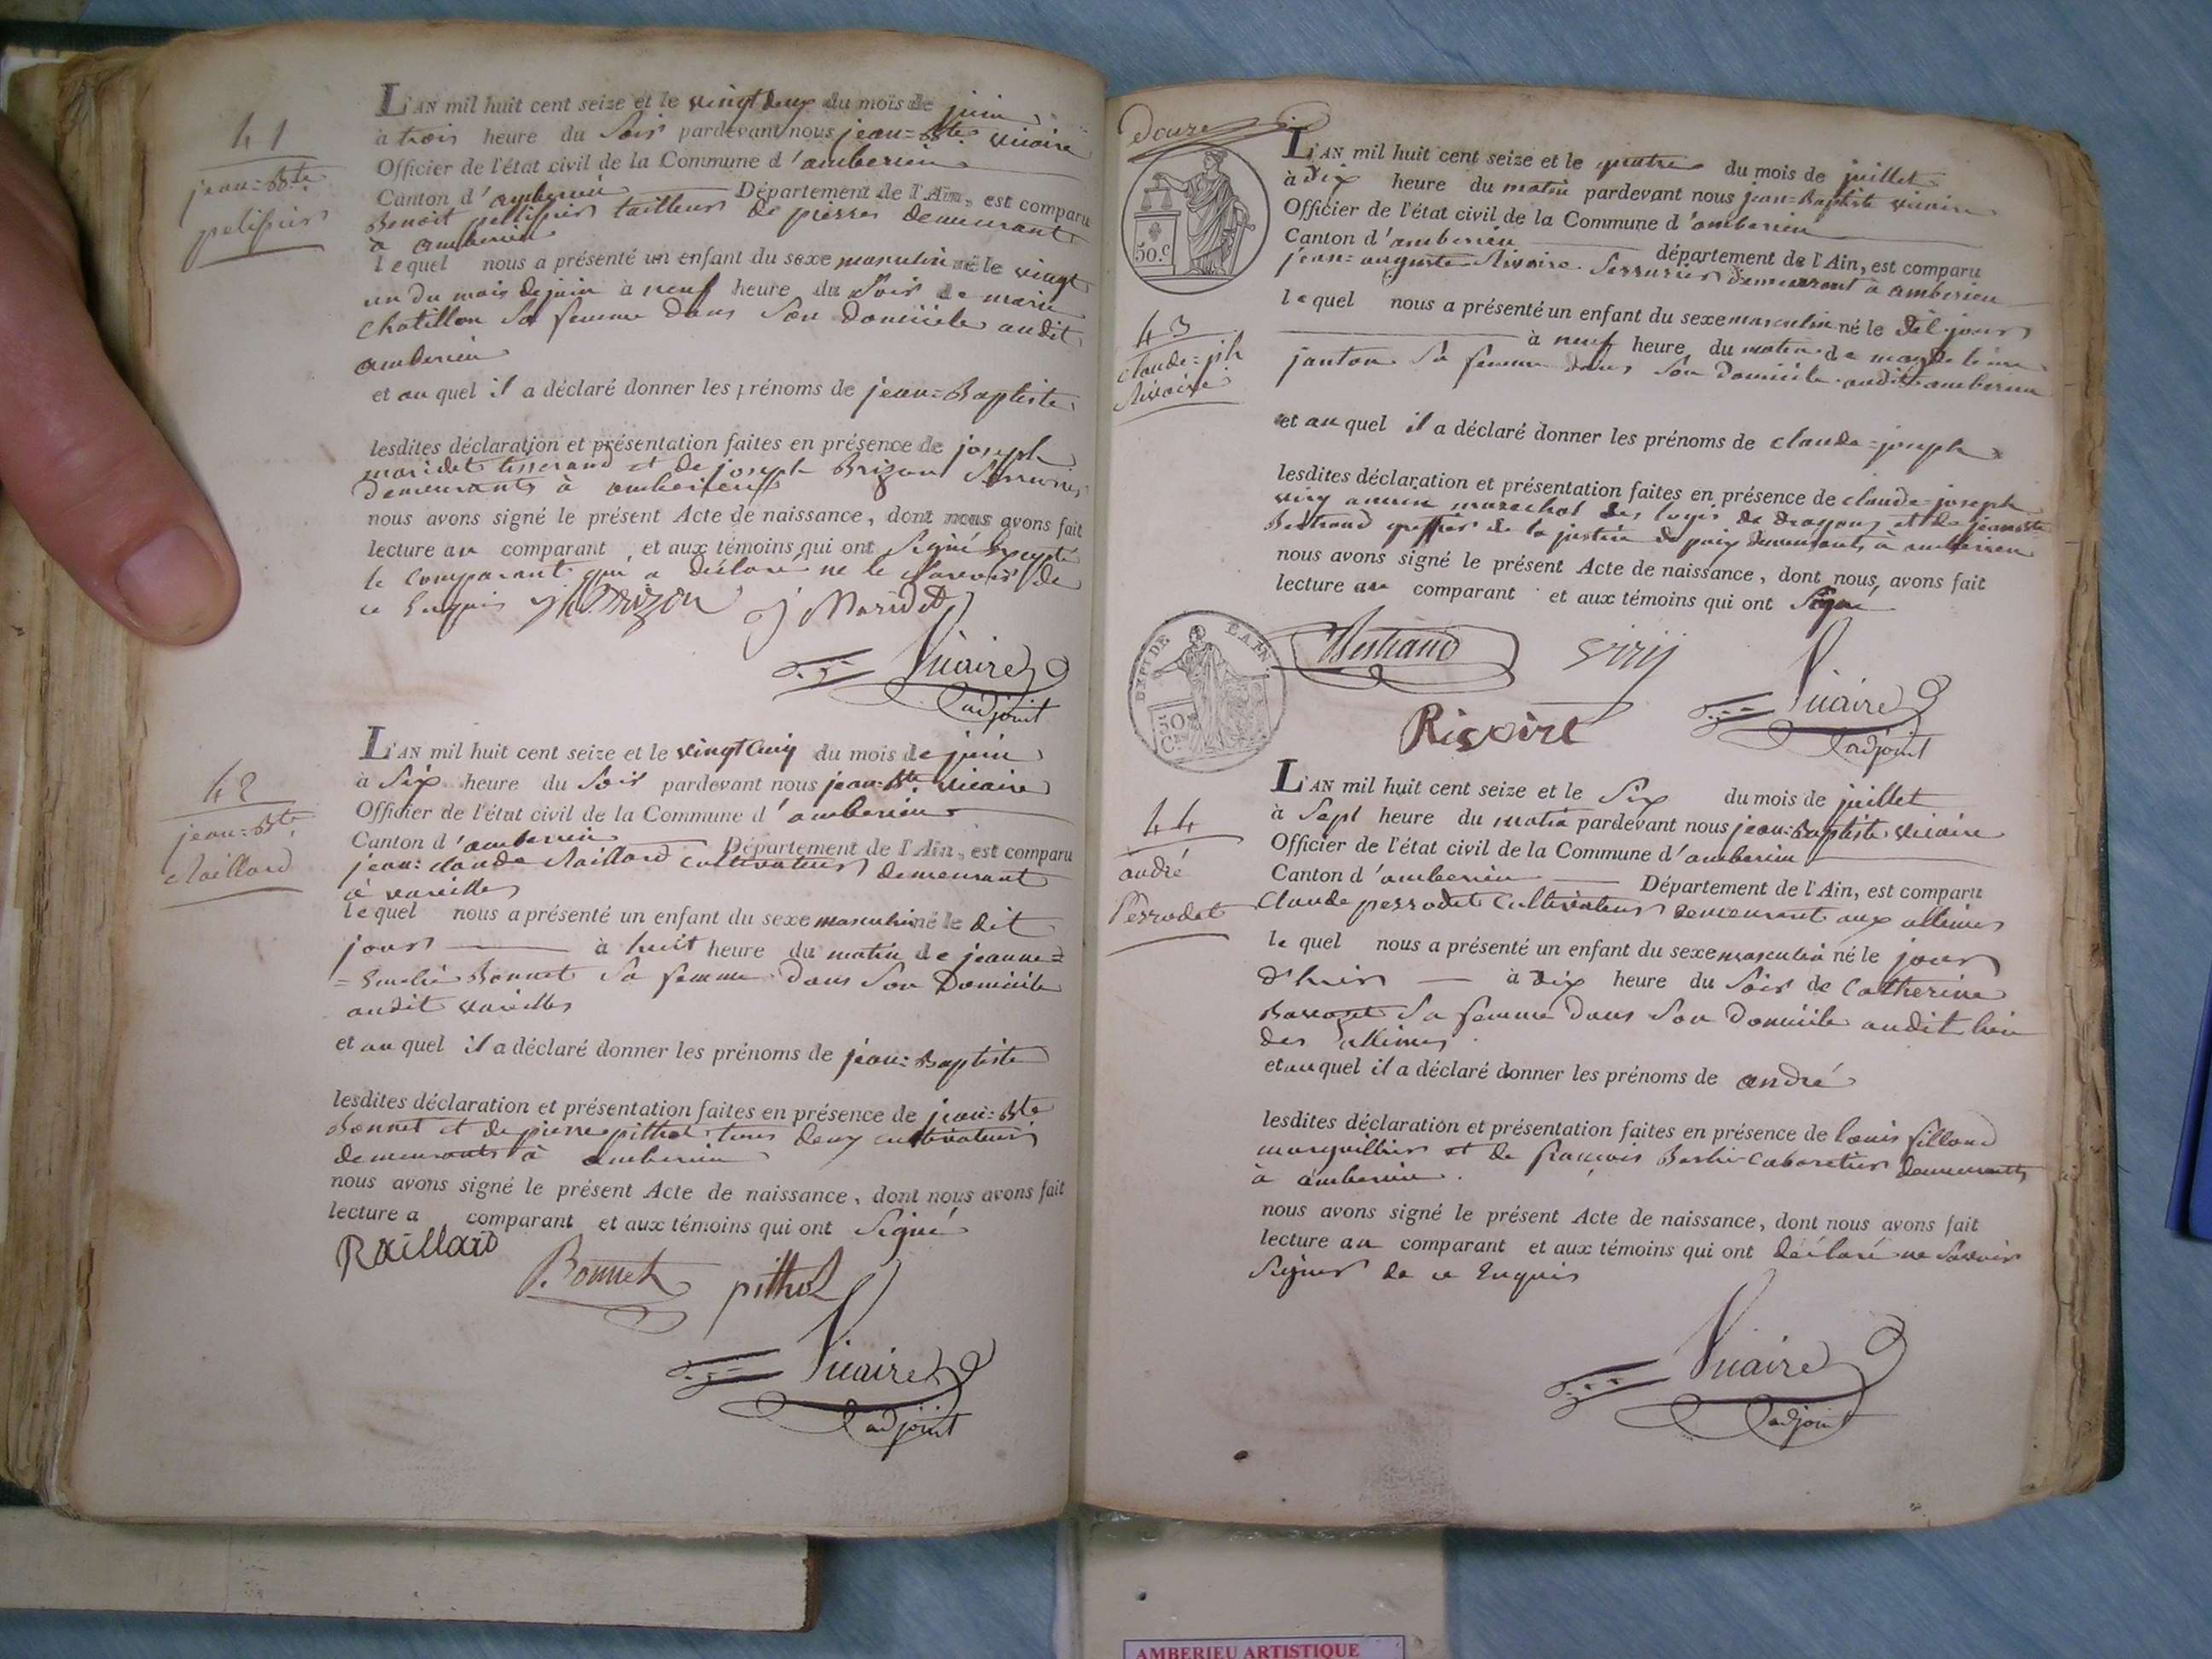 41
jean=Bte
pelissier
L'AN mil huit cent seize et le vingt deux du mois de juin
à trois heure du Soir pardevant nous jean=Bte vicaire
Officier de l'état civil de la Commune d'amberieu
Canton d'amberieu Département de l'Ain, est comparu
Benoit pellissier tailleur de pierres demeurant
à amberieu
lequel nous a présenté un enfant du sexe masculin né le vingt
un du mois de juin à neuf heure du Soir de marie
chatillon Sa femme dans Son domicile audit
amberieu
et au quel il a déclaré donner les prénoms de jean=Baptiste
lesdites déclaration et présentation faites en présence de joseph
maridet tisserand et de joseph Brizon Serrurier
demeurants à amberieu
nous avons signé le présent Acte de naissance, dont nous avons fait
lecture au comparant, et aux témoins qui ont Signé Excepté
le comparant qui a déclaré ne le Savoir de
ce Enquis jh Brizon J Maridet
Vicaire
adjoint
42
jean=Bte
Raillard
L'AN mil huit cent seize et le vingt cinq du mois de juin
à Six heure du Soir pardevant nous jean=Bte vicaire
Officier de l'état civil de la Commune d'amberieu
Canton d'amberieu Département de l'Ain, est comparu
jean=claude Raillard cultivateur demeurant
à vareilles
lequel nous a présenté un enfant du sexe masculin né le dit
jour à huit heure du matin de jeanne=
=Emelie Bonnet Sa femme dans Son Domicile
audit vareilles
et au quel il a déclaré donner les prénoms de jean=Baptiste
lesdites déclaration et présentation faites en présence de jean=Bte
Bonnet et de pierre pithol tous deux cultivateurs
demeurants à amberieu
nous avons signé le présent Acte de naissance, dont nous avons fait
lecture a comparant et aux témoins qui ont Signé
Raillard
Bonnet pithol
Vicaire
adjoint
douze
50.c
43
claude=jh
Rivoire
L'AN mil huit cent seize et le quatre du mois de juillet
à dix heure du matin pardevant nous jean=Baptiste vicaire
Officier de l'état civil de la Commune d'amberieu
Canton d'amberieu département de l'Ain, est comparu
jean=auguste Rivoire Serrurier demeurant à amberieu
lequel nous a présenté un enfant du sexe masculin né le dit jour
à neuf heure du matin de magdeleine
janton Sa femme dans Son Domicile audit amberieu
et au quel il a déclaré donner les prénoms de claude=joseph
lesdites déclaration et présentation faites en présence de claude=joseph
ancien marechal des logis de dragons et de jean Bte
Bertrand greffier de la justice de paix demeurants à amberieu
nous avons signé le présent Acte de naissance, dont nous avons fait
lecture au comparant et aux témoins qui ont Signé
DEPT DE L'AIN
50 Cs
Bertrand
Rivoire
Vicaire
adjoint
44
andré
Perrodet
L'AN mil huit cent seize et le Six du mois de juillet
à Sept heure du matin pardevant nous jean=Baptiste vicaire
Officier de l'état civil de la Commune d'amberieu
Canton d'amberieu Département de l'Ain, est comparu
Claude perrodet cultivateur demeurant aux allimes
le quel nous a présenté un enfant du sexe masculin né le jour
d'hier à dix heure du Soir de Catherine
Sa femme dans Son domicile audit lieu
des allimes
et au quel il a déclaré donner les prénoms de andré
lesdites déclaration et présentation faites en présence de louis filloud
marguillier et de françois cabaretier demeurants
à amberieu.
nous avons signé le présent Acte de naissance, dont nous avons fait
lecture au comparant et aux témoins qui ont déclaré ne Savoir
Signer de ce Enquis
Vicaire
adjoint
AMBERIEU ARTISTIQUE